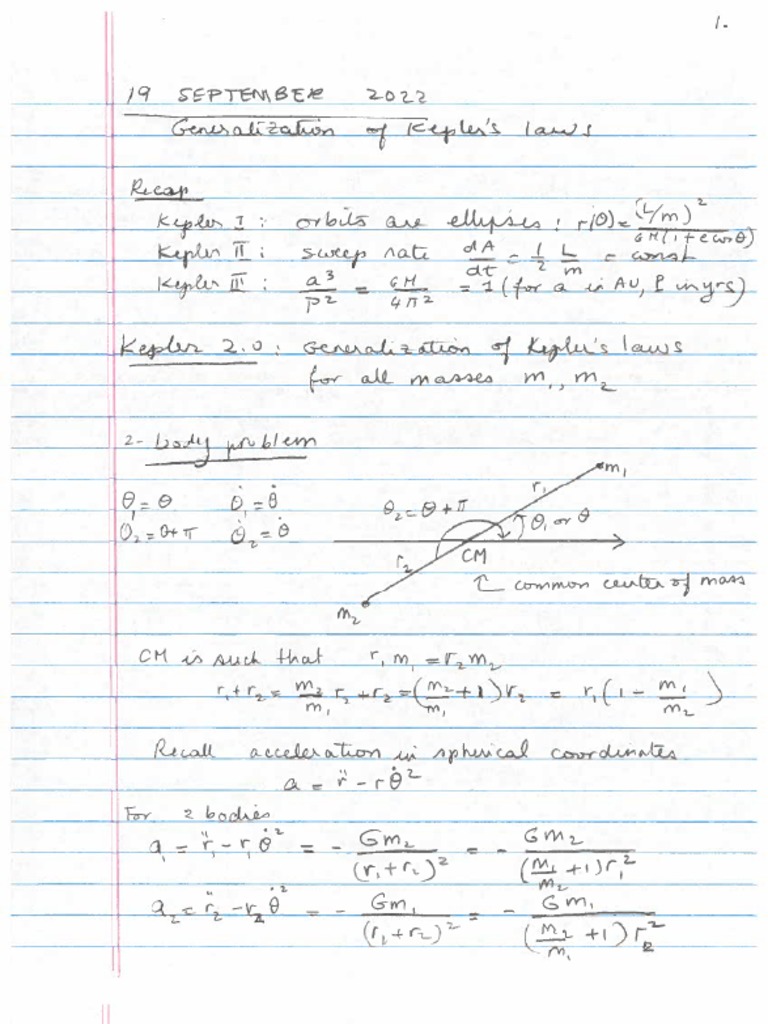 1.
19 SEPTEMBER 2022
Generalization of Kepler's laws
Recap
Kepler I : orbits are ellipses : r(θ) = (L/m)² / GM(1+e cosθ)
Kepler II : sweep rate dA/dt = 1/2 L/m = const
Kepler III : a³/P² = GM/4π² = 1 (for a in AU, P in yrs)
Kepler 2.0 : Generalization of Kepler's laws
for all masses m₁, m₂
2-body problem
m₁
r₁
θ₁ = θ θ̇₁ = θ̇
θ₂ = θ + π
θ₁ or θ
θ₂ = θ + π θ̇₂ = θ̇
r₂
CM
common center of mass
m₂
CM is such that r₁ m₁ = r₂ m₂
r₁ + r₂ = m₂/m₁ r₂ + r₂ = (m₂/m₁ + 1) r₂ = r₁ (1 - m₁/m₂)
Recall acceleration in spherical coordinates
a = r̈ - r θ̇²
For 2 bodies
a₁ = r̈₁ - r₁ θ̇² = - Gm₂/(r₁+r₂)² = - Gm₂/(m₁/m₂ + 1) r₁²
a₂ = r̈₂ - r₂ θ̇² = - Gm₁/(r₁+r₂)² = - Gm₁/(m₂/m₁ + 1) r₂²